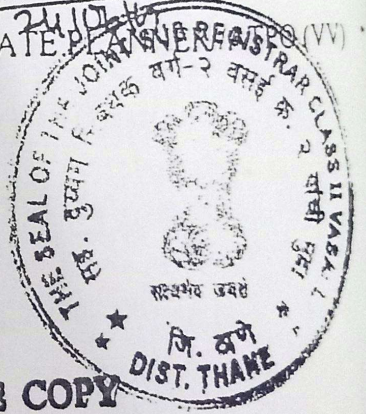 24/07/
ATE PLANNER ATPO (VV)
THE SEAL OF THE JOINT SUB REGISTRAR CLASS II VASAI
सह. दुय्यम निबंधक वर्ग-२ वसई क्र. २ यांची मुद्रा
सत्यमेव जयते
जि. ठाणे
DIST. THANE
COPY